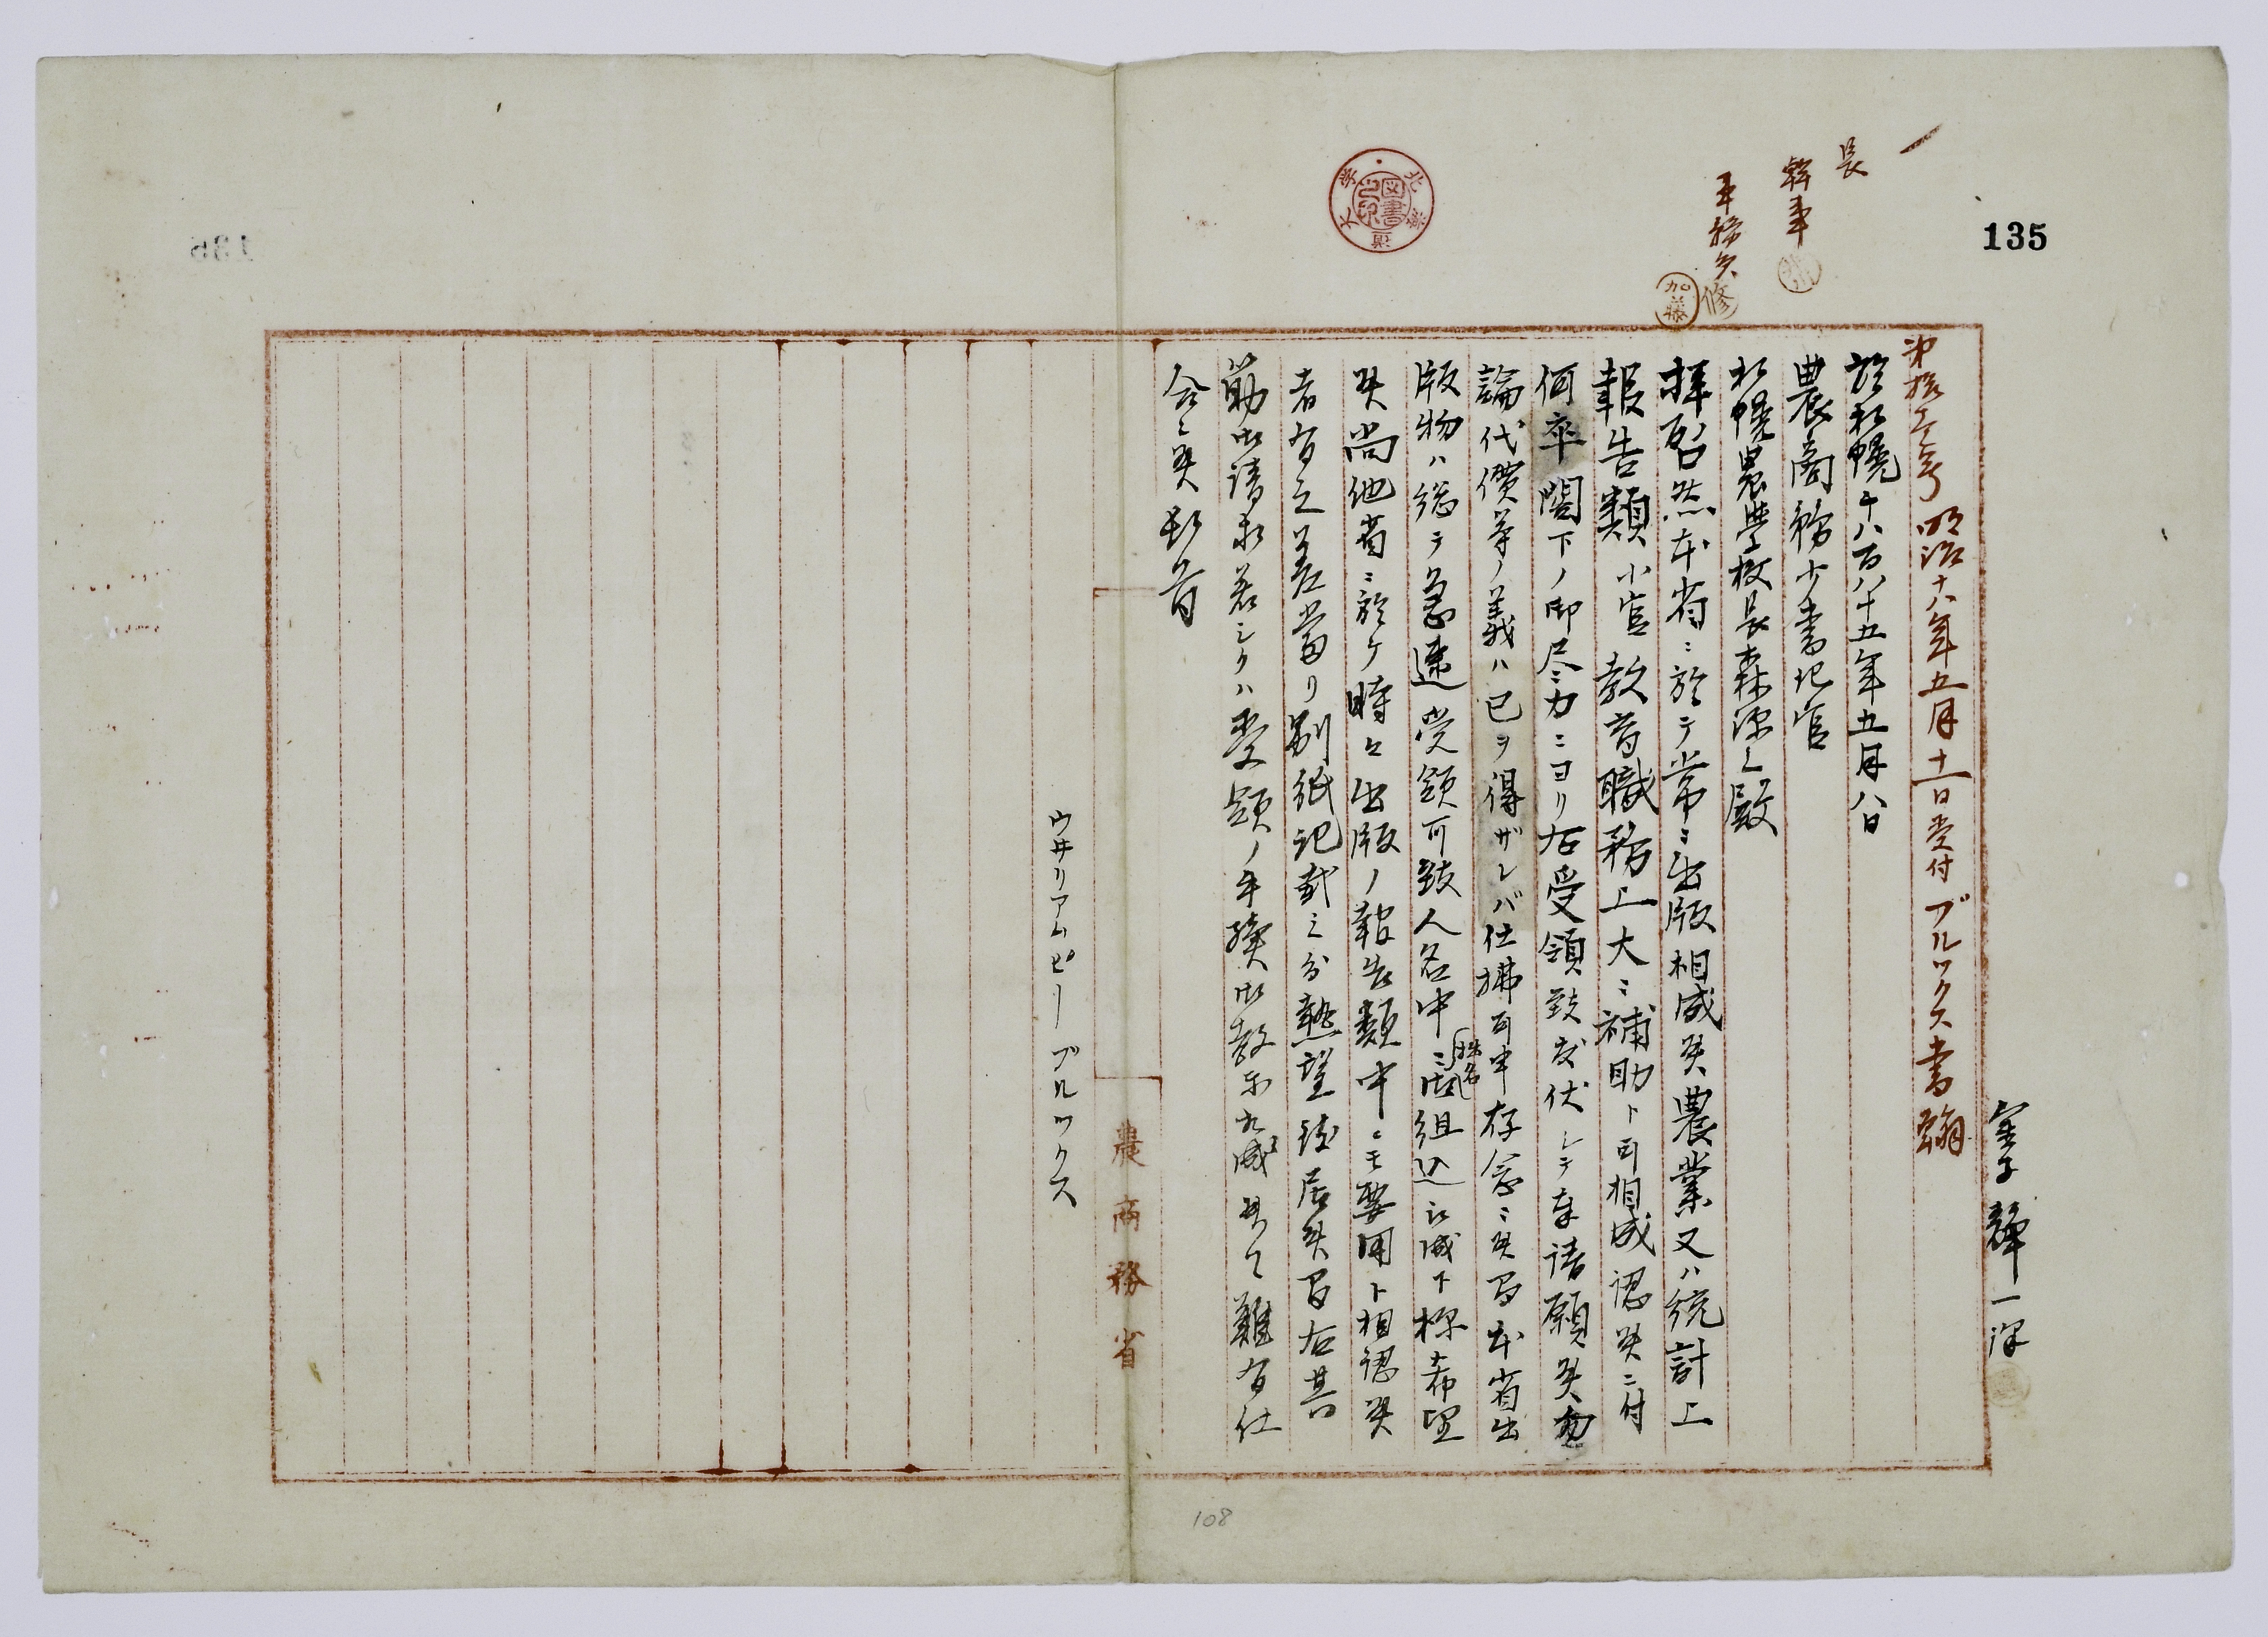 135
長
幹事
事務係
修
加藤
北海道大学図書之印
明治十八年五月十一日受付 ブルックス書翰
一譯
於札幌千八百八十五年五月八日
農商務少書記官
札幌農学校長森源三殿
拝啓然本省ニ於テ常ニ出版相成候農業又ハ統計上
報告類小官教育職務上大ニ補助ト可相成認候ニ付
何卒閣下ノ御尽力ニヨリ右受領致度伏シテ奉請願候勿
論代價等ノ義ハ已ヲ得ザレバ仕拂可申存念ニ候間本省出
版物ハ総テ急速受領可致人名中ニ姓名組込被成下様希望
候尚他省ニ於ケ時々出版ノ報告類中ニモ要用ト相認候
者有之差當リ別紙記載之分懇望致居候間右其
筋御請求若シクハ受領ノ手續御教示被成候ハヽ難有仕
合ニ候頓首
ウヰリアムピー ブルックス
農商務省
108